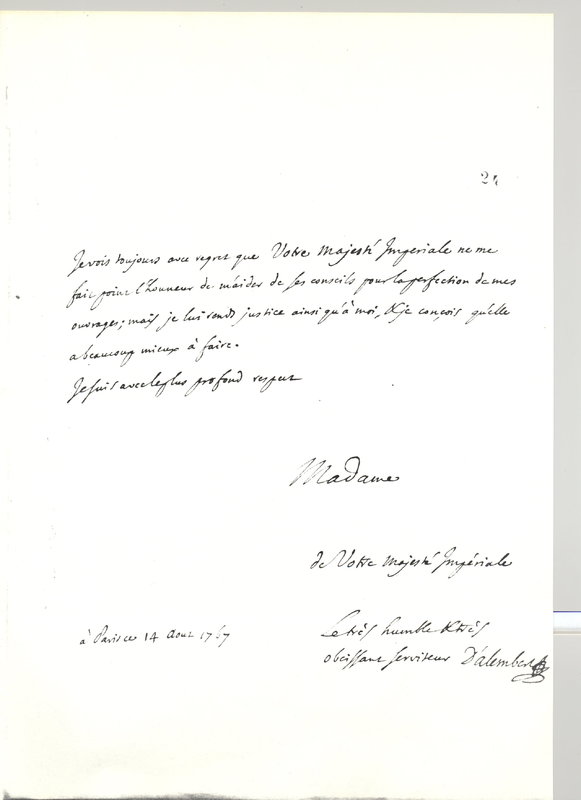 24
Je vois toujours avec regret que Votre Majesté Imperiale ne me
fait point l'honneur de m'aider de ses conseils pour la perfection de mes
ouvrages; mais je lui rends justice ainsi qu'à moi, & je conçois qu'elle
a beaucoup mieux à faire.
Je suis avec le plus profond respect
Madame
de Votre Majesté Impériale
à Paris ce 14 Aout 1767
Le très humble & très
obeissant serviteur D'alembert